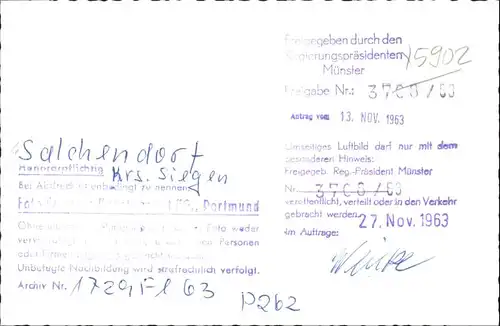 Salchendorf
Krs. Siegen
Honorarpflichtig
Bei Abdruck unbedingt zu nennen
Dortmund
Ohne
Foto weder
von Personen
oder
Unbefugte Nachbildung wird strafrechlich verfolgt.
Archiv Nr. 1729 Fl 63
P262
Freigegeben durch den
Regierungspräsidenten
Münster
15902
Freigabe Nr.: 3708/63
Antrag vom 13. NOV. 1963
Umseitiges Luftbild darf nur mit dem
besonderen Hinweis:
Freigegeb. Reg.-Präsident Münster
Nr. 3708/63
veröffentlicht, verteilt oder in den Verkehr
gebracht werden.
27. Nov. 1963
Im Auftrage: